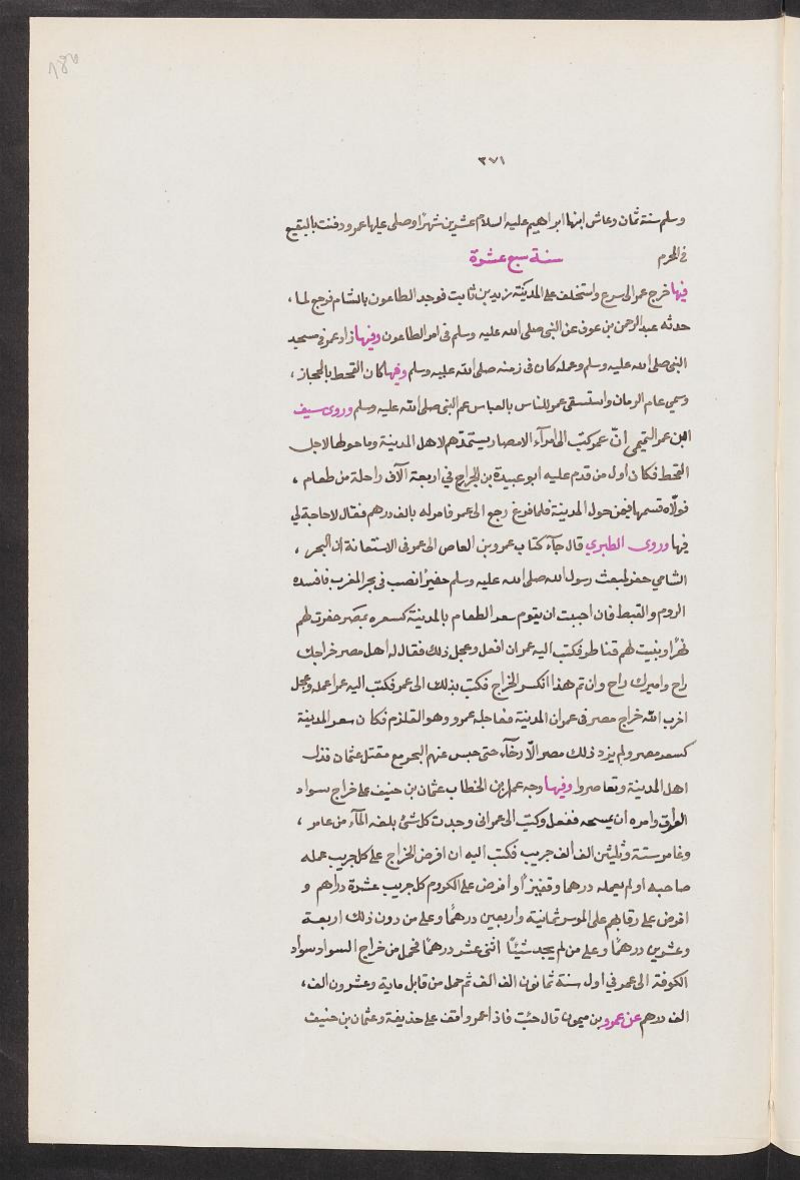 ٢٧١
وسلم سنة ثمان وعاش ابنها ابراهيم عليه السلام عشرين شهرًا وصلى عليها عمر ودفنت بالبقيع
في المحرم سنة سبع عشرة
فيها خرج عمر الى سرع واستخلف على المدينة زيد بن ثابت فوجد الطاعون بالشام فرجع لما،
حدثه عبد الرحمن بن عوف عن النبى صلى الله عليه وسلم فى امر الطاعون وفيها زاد عمر في مسجد
النبى صلى الله عليه وسلم وعمله كما كان فى زمنه صلى الله عليه وسلم وفيها كان القحط بالحجاز،
وسمي عام الرمادة واستسقى عمر للناس بالعباس عم النبى صلى الله عليه وسلم وروى سيف
ابن عمر التميمى انّ عمر كتب الى امرآء الامصار يستمدّهم لاهل المدينة وما حولها لاجل
القحط فكان اول من قدم عليه ابو عبيدة بن الجراح في اربعة آلاف راحلة من طعام،
فولاّه قسمها فيمن حول المدينة فلما فرغ رجع الى عمر فامر له بالف درهم فقال لا حاجة لي
فيها وروى الطبري قال جآء كتاب عمرو بن العاص الى عمر فى الاستعانة ان البحر،
الشامي حفر لمبعث رسول الله صلى الله عليه وسلم حفيرًا نصب فى بحر المغرب فافسده
الروم والقبط فان اجببت ان يقوم سعر الطعام بالمدينة كسعره بمصر حفرت لهم
نهرًا وبنيت لهم قناطر فكتب اليه عمر ان افعل وعجل ذلك فقال له اهل مصر خراجك
راج واميرك راح وان تم هذا انكسر الخراج فكتب بذلك الى عمر فكتب اليه عمر اعمله وعجل
اخرب الله خراج مصر فى عمران المدينة فعاجله عمرو وهو القلزم فكان سعر المدينة
كسعر مصر ولم يزد ذلك مصر الاّ رخآء حتى حبس عنهم البحر مع مقتل عثمان فذل
اهل المدينة وتعاصروا وفيها وجه عمر بن الخطاب عثمان بن حنيف على خراج سواد
العراق وامره ان يمسحه ففعل وكتب الى عمر انى وجدت كل شئ بلغه المآء من عامر،
وغامر ستة وثلثين الف الف جريب فكتب اليه ان افرض الخراج على كل جريب عمله
صاحبه او لم يعمله درهما وقفيزًا وافرض على الكروم كل جريب عشرة دراهم و
افرض على رقابهم على الموسر ثمانية واربعين درهمًا وعلى من دون ذلك اربعة
وعشرين درهمًا وعلى من لم يجد شيئًا اثنى عشر درهمًا فحمل من خراج السواد سواد
الكوفة الى عمر في اول سنة ثمانون الف الف ثم حمل من قابل ماية وعشرون الف،
الف درهم عن عمرو بن ميمون قال جئت فاذا عمر واقف على حذيفة وعثمان بن حنيف